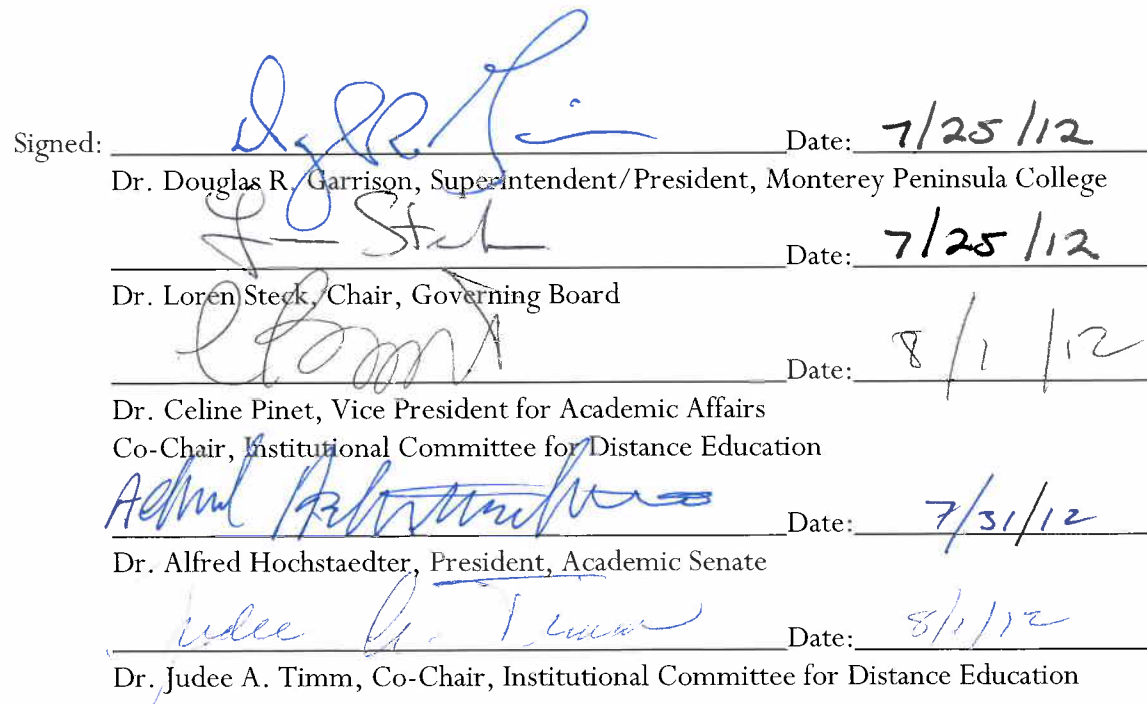 Signed: Date: 7/25/12
Dr. Douglas R. Garrison, Superintendent/President, Monterey Peninsula College
Date: 7/25/12
Dr. Loren Steck, Chair, Governing Board
Date: 8/1/12
Dr. Celine Pinet, Vice President for Academic Affairs
Co-Chair, Institutional Committee for Distance Education
Date: 7/31/12
Dr. Alfred Hochstaedter, President, Academic Senate
Judee A. Timm Date: 8/1/12
Dr. Judee A. Timm, Co-Chair, Institutional Committee for Distance Education